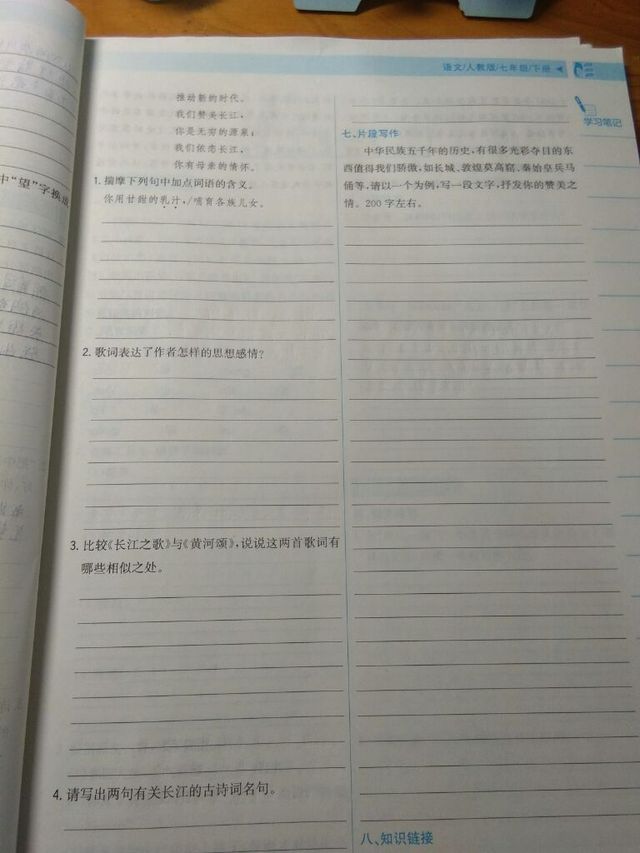 语文/人教版/七年级/下册
学习笔记
中“望”字换成
推动新的时代。
我们赞美长江，
你是无穷的源泉；
我们依恋长江，
你有母亲的情怀。
1. 揣摩下列句中加点词语的含义。
你用甘甜的乳汁，/哺育各族儿女。
2. 歌词表达了作者怎样的思想感情？
3. 比较《长江之歌》与《黄河颂》，说说这两首歌词有
哪些相似之处。
4. 请写出两句有关长江的古诗词名句。
七、片段写作
中华民族五千年的历史，有很多光彩夺目的东
西值得我们骄傲，如长城、敦煌莫高窟、秦始皇兵马
俑等，请以一个为例，写一段文字，抒发你的赞美之
情。200字左右。
八、知识链接